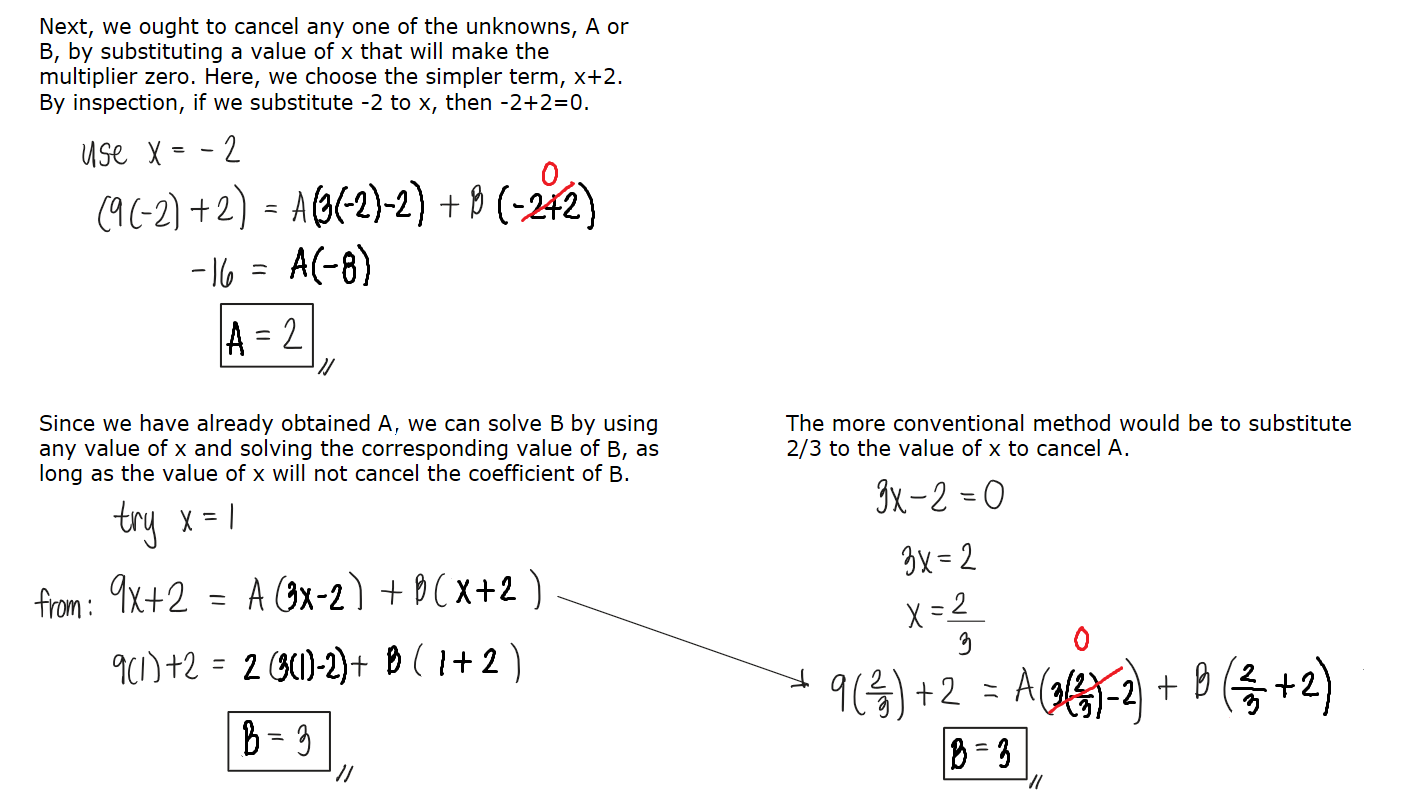 Next, we ought to cancel any one of the unknowns, A or
B, by substituting a value of x that will make the
multiplier zero. Here, we choose the simpler term, x+2.
By inspection, if we substitute -2 to x, then -2+2=0.
use x = -2
0
(9(-2)+2) = A(3(-2)-2) + B(-2+2)
-16 = A(-8)
A = 2 //
Since we have already obtained A, we can solve B by using
any value of x and solving the corresponding value of B, as
long as the value of x will not cancel the coefficient of B.
try x = 1
from: 9x+2 = A(3x-2) + B(x+2)
9(1)+2 = 2(3(1)-2)+ B(1+2)
B = 3 //
The more conventional method would be to substitute
2/3 to the value of x to cancel A.
3x-2 = 0
3x = 2
x = 2/3
0
9(2/3)+2 = A(3(2/3)-2) + B(2/3+2)
B = 3 //